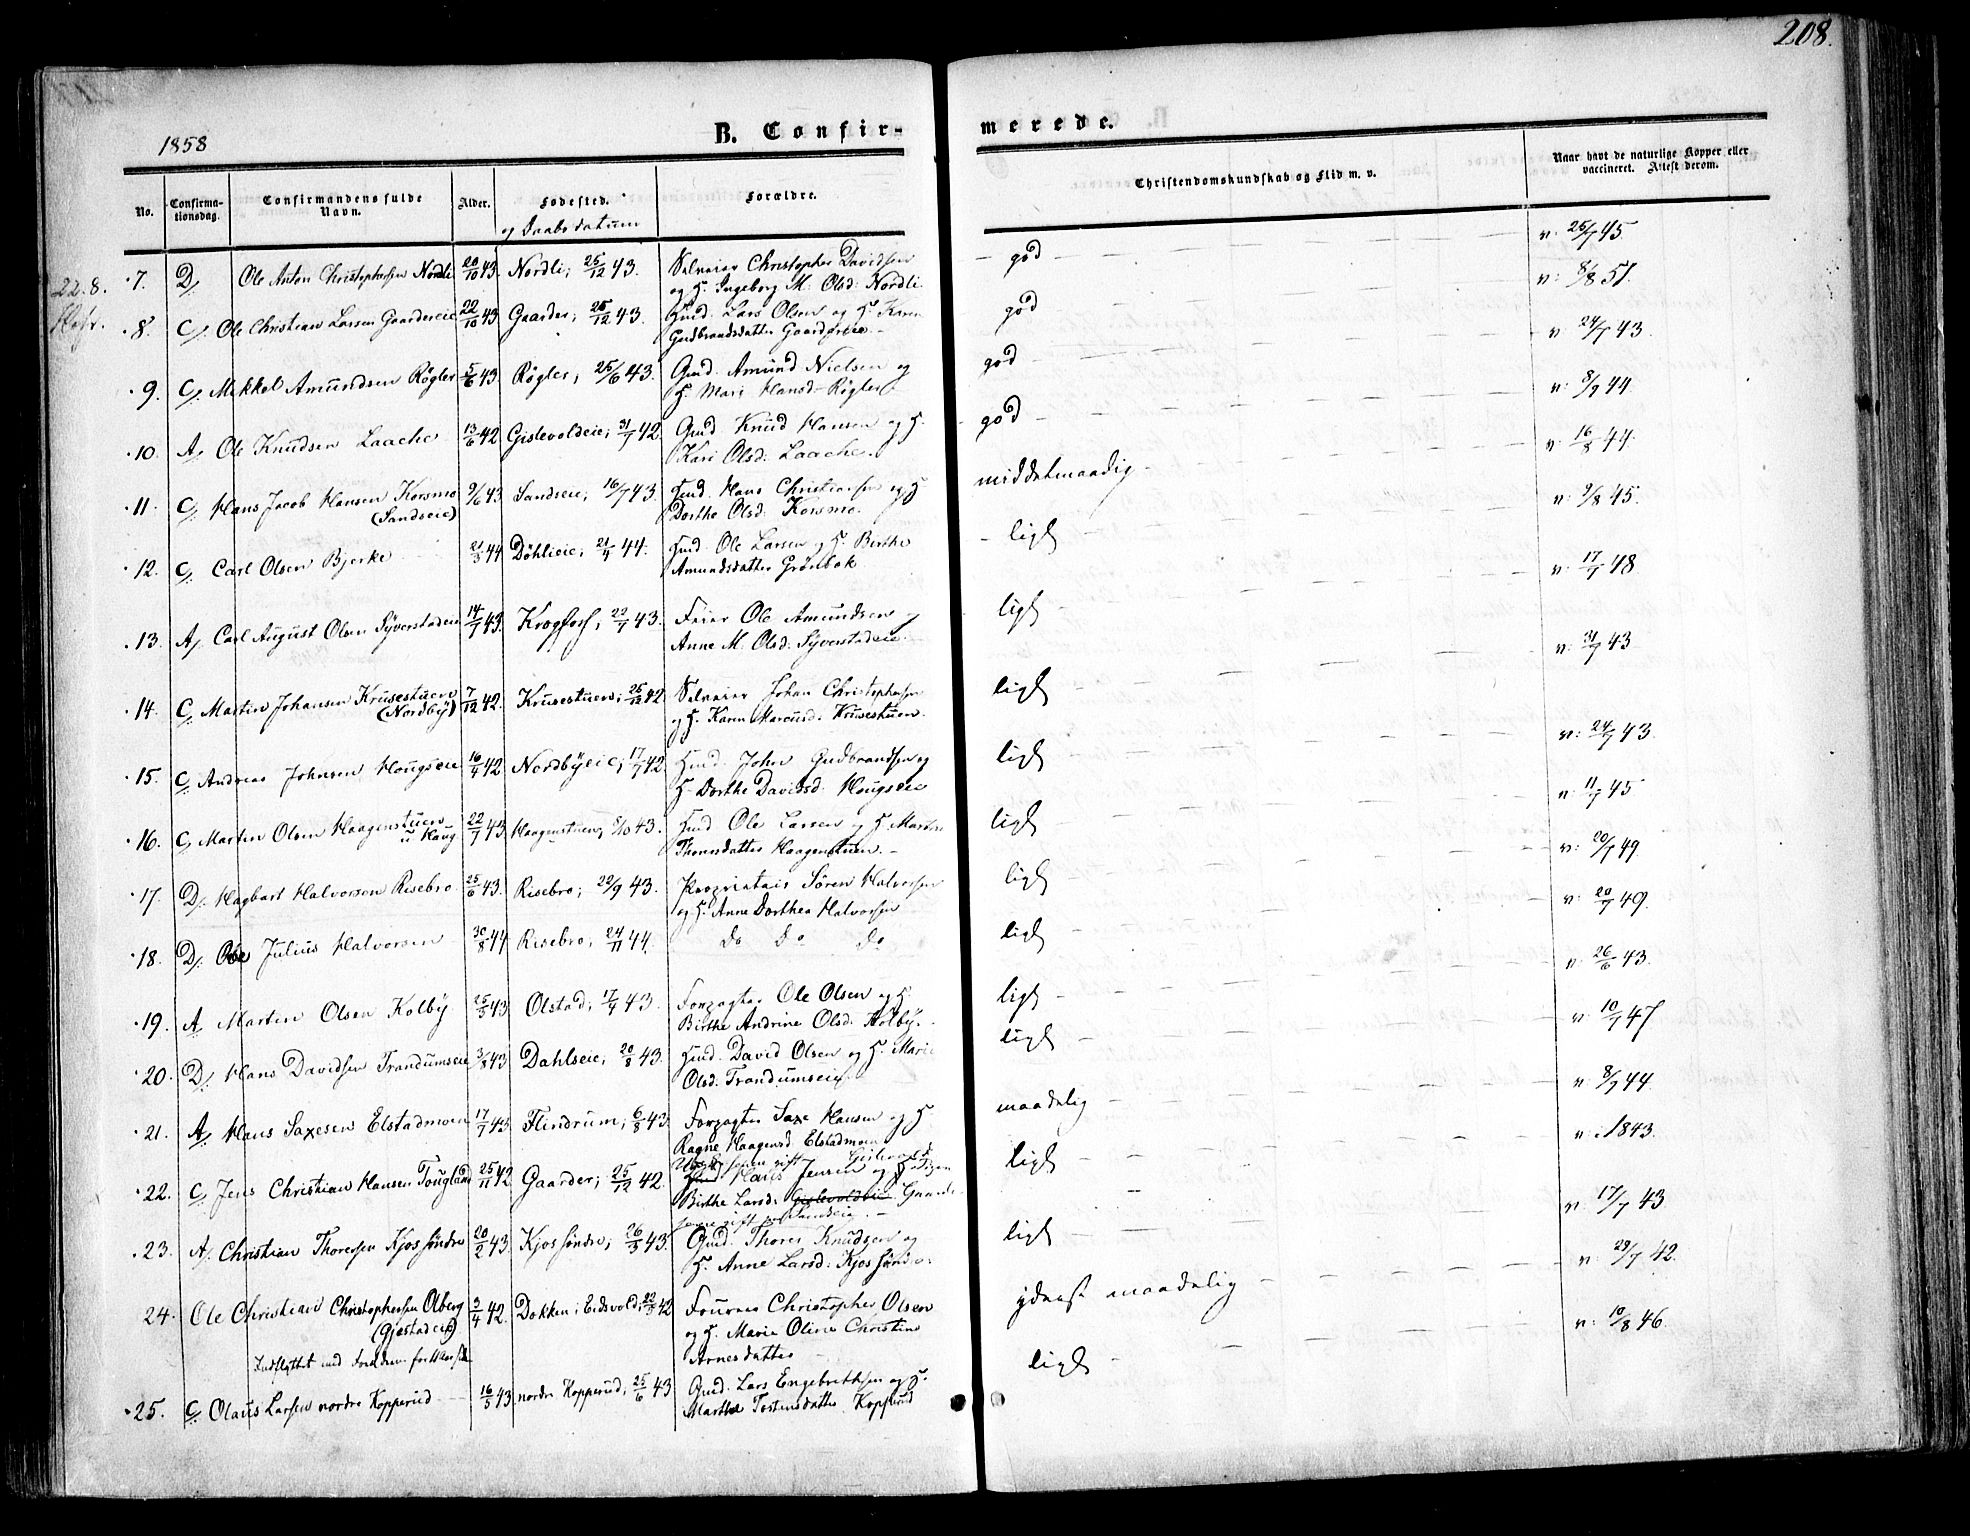 208.
1858
B. Confir-
merede.
No.
Confirma-
tionsdag.
Confirmandens fulde
Navn.
Alder.
Fødested.
og Daabsdatum
Forældre.
Christendomskundskab og Flid m. v.
Naar havt de naturlige Kopper eller
vaccineret. Attest derom.
22. 8.
7. D/. Ole Anton Christophersen Nordli 20/10 43. Nordli; 25/12 43. Selveier Christopher Davidsen
og H. Ingeborg M. Olsd: Nordli.
god v. 25/7 45.
8. C/. Ole Christian Larsen Gaardereie 22/10 43 Gaarder; 25/12 43. Huusmd. Lars Olsen og H. Karen
Gudbrandsdatter Gaardereie
god v: 8/8 51.
9. C/. Mikkel Amundsen Røgler 5/6 43. Røgler; 25/6 43. Gmd. Amund Nielsen og
H. Mari Hansd. Røgler
god v 24/7 43.
10. A/. Ole Knudsen Laache 13/6 42 Gislevoldeie; 31/7 42. Gmd Knud Hansen og H.
Kari Olsd: Laache.
god v: 8/9 44.
11. C/. Hans Jacob Hansen Korsmo 9/6 43 Sandseie; 16/7 43. Hmd. Hans Christiansen og H
(Sandseie) Dorthe Olsd. Korsmo.
middelmaadig v. 16/8 44.
12. C/. Carl Olsen Bjerke 21/3 44 Döhlieie; 21/4 44. Hmd. Ole Larsen og H. Birthe
Amundsdatter Grønbok
ligt v: 9/8 45.
13. A/. Carl August Olsen Syverstadeie 14/7 43. Krogfosf; 22/7 43. Feier Ole Amundsen og
Anne M. Olsd: Syverstadeie.
ligt v. 17/7 48
14. C/. Martin Johansen Krusestuen 7/12 42. Krusestuen; 26/12 42 Selveier Johan Christophersen
(Nordby) og H. Karen Marcusd. Krusestuen.
ligt v: 31/7 43
15. C/. Andreas Johnsen Hougseie 16/4 42 Nordbyeie; 17/7 42 Hmd. John Gudbrandsen og
H. Dorthe Davidsd. Hougseie
ligt v: 24/7 43.
16. C/. Martin Olsen Haagenstuen 22/7 43 Haagenstuen; 8/10 43. Hmd Ole Larsen og H. Marthe
u. Haug Thoresdatter Haagenstuen.
ligt v: 11/7 45
17. D/. Hagbart Halvorsen Risebro 25/6 43. Risebro; 22/9 43. Proprietair Sören Halvorsen
og H. Anne Dorthea Halvorsen
ligt v: 20/7 49.
18. D/. Ole Julius Halvorsen 30/8 44 Risebro; 24/11 44. Do Do Do
ligt v: 20/7 49.
19. A Martin Olsen Kolby 25/3 43 Olstad; 17/4 43. Forpagter Ole Olsen og H.
Birthe Andrine Olsd. Kolby.
ligt v. 26/6 43.
20. D/. Hans Davidsen Trandumseie 3/8 43 Dahlseie; 20/8 43. Hmd. David Olsen og H. Marie
Olsd. Trandumseie
ligt v: 10/7 47
21. A/. Hans Saxesen Elstadmoen 17/7 43. Flindrum; 6/8 43. Forpagter Saxe Hansen og H
Ragne Haagensd. Elstadmoen
maadelig v: 8/7 44.
22. C/. Jens Christian Hansen Tougland 25/11 42 Gaarder; 25/12 42. Hans Jensen og
Birthe Larsd. Gislevoldeie Gaarder
ligt v: 1843.
23. A/. Christian Thoresen Kjos søndre 20/2 43. Kjos søndre; 26/3 43. Gmd. Thores Knudsen og
H. Anne Larsd. Kjos søndre
ligt v: 17/7 43
24. Ole Christian Christophersen Olberg 3/4 42. Dokken; Eidsvold; 22/5 42 Fourer Christopher Olsen
(Gjestadeie) og H. Marie Oline Christine
Indflyttet med Forældrene fra Arnesdatter
yderst maadelig v: 29/7 42.
25. C/. Olaus Larsen nordre Kopperud 16/5 43. nordre Kopperud; 25/6 43 Gmd. Lars Engebrethsen og H.
Marthe Tostensdatter Kopperud
ligt v: 10/8 46.